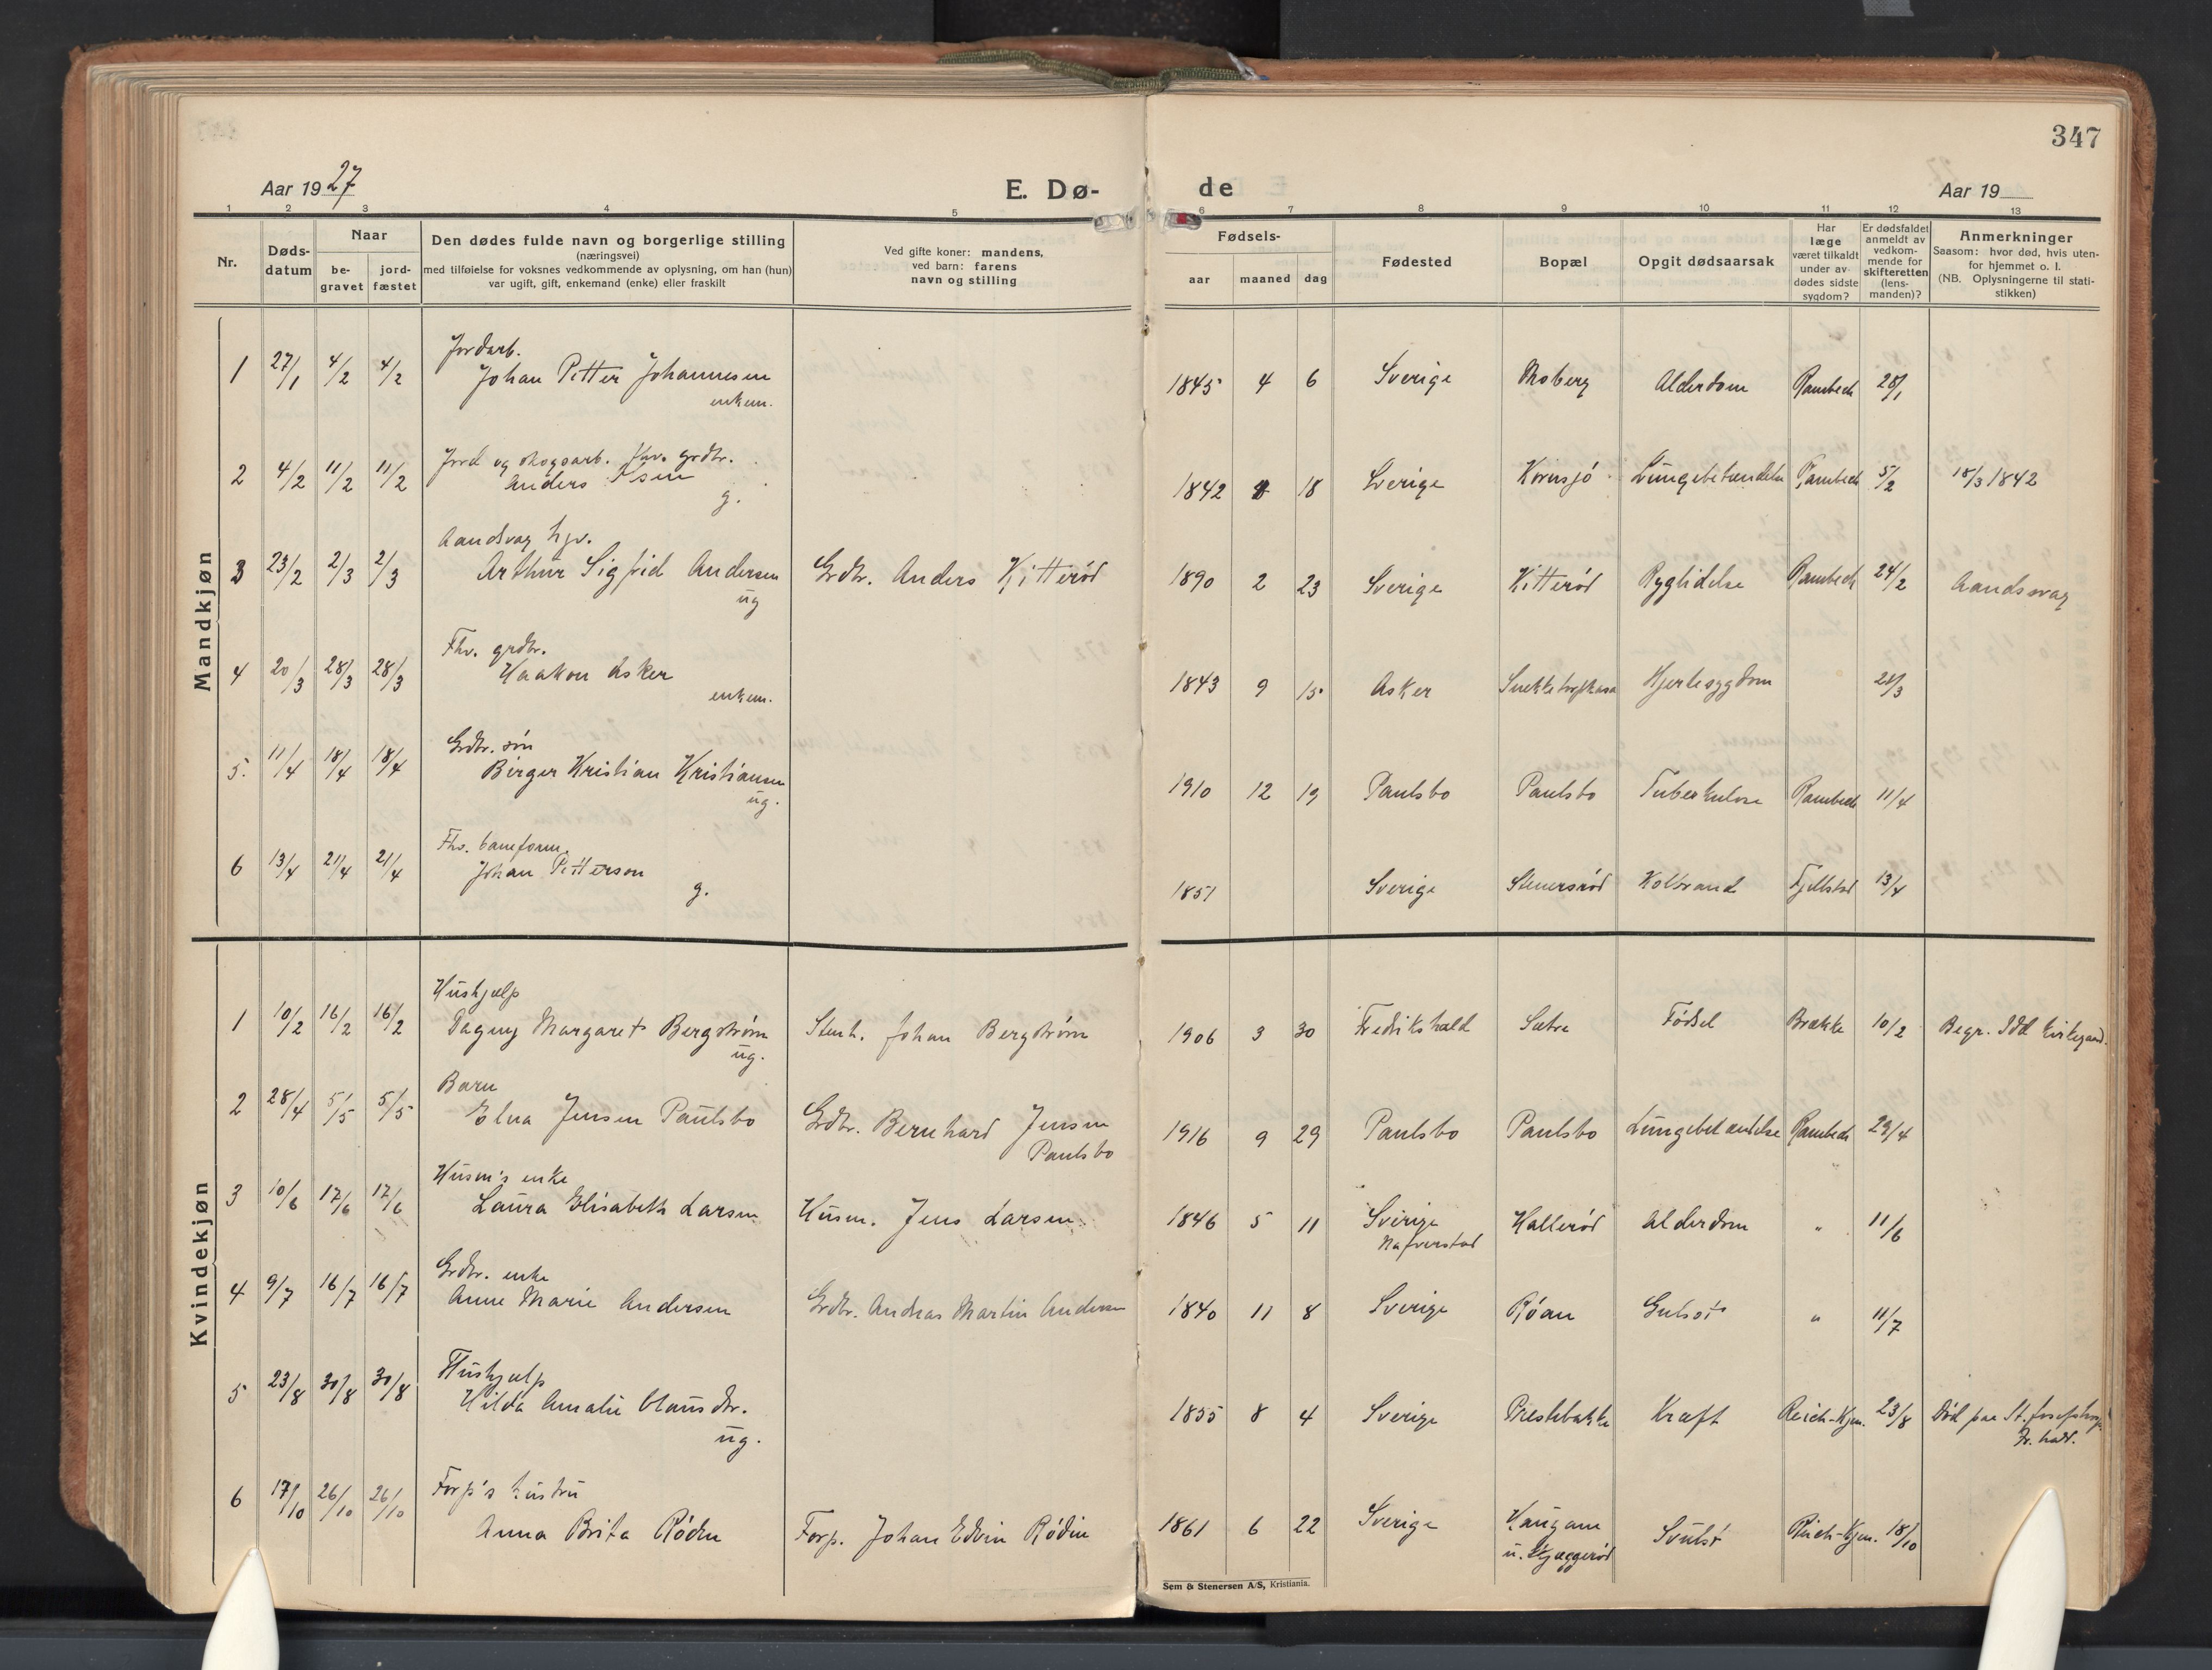 347
Aar 1927 E. Dø- de Aar 19
1 2 3 4 5 6 7 8 9 10 11 12 13
Nr.
Døds-
datum
Naar
be-
gravet
jord-
fæstet
Den dødes fulde navn og borgerlige stilling
(næringsvei)
med tilføielse for voksnes vedkommende av oplysning, om han (hun)
var ugift, gift, enkemand (enke) eller fraskilt
Ved gifte koner: mandens,
ved barn: farens
navn og stilling
Fødsels-
aar maaned dag
Fødested
Bopæl
Opgit dødsaarsak
Har
læge
været tilkaldt
under av-
dødes sidste
sygdom?
Er dødsfaldet
anmeldt av
vedkom-
mende for
skifteretten
(lens-
manden)?
Anmerkninger
Saasom: hvor død, hvis uten-
for hjemmet o. l.
(NB. Oplysningerne til stati-
stikken)
Mandkjøn
Jordarb.
1 27/1 4/2 4/2 Johan Petter Johannesen 1845 4 6 Sverige Moberg Alderdom Rambech 28/1
enkem.
Jord og skogsarb. Fhv. grdbr.
2 4/2 11/2 11/2 Anders Olsen 1842 18 Sverige Kornsjø Lungebetændelse Rambech 5/2 18/3 1842
g.
Aandsvag hjv.
3 23/2 2/3 2/3 Arthur Sigfrid Andersen Grdbr. Anders Kitterød 1890 2 23 Sverige Kitterød Ryglidelse Rambech 24/2 Aandssvag
ug
Fhv. grdbr.
4 20/3 28/3 28/3 Haakon Asker 1843 9 15 Asker Hjertesygdom 21/3
enkem.
Grdbr. søn
5. 11/4 18/4 18/4 Birger Kristian Kristiansen 1910 12 19 Paulsbo Paulsbo Tuberkulose Rambech 11/4
ug.
Fhv. baneform.
6 13/4 21/4 21/4 Johan Petterson 1851 Sverige Stenersrød Kolbrand Fjellstad 13/4
g.
Kvindekjøn
Hushjælp
1 10/2 16/2 16/2 Dagny Margaret Bergstrøm Stenh. Johan Bergstrøm 1906 3 30 Fredrikshald Sætre Fødsel Brække 10/2 Begr. Idd kirkegaard.
ug.
Barn
2 28/4 5/5 5/5 Elna Jensen Paulsbo Grdbr. Bernhard Jensen 1916 9 29 Paulsbo Paulsbo Lungebetændelse Rambech 29/4
Paulsbo
Husm's enke
3 10/6 17/6 17/6 Laura Elisabeth Larsen Husm. Jens Larsen 1846 5 11 Sverige Hallerød Alderdom " 11/6
Nafverstad
Grdbr. enke
4 9/7 16/7 16/7 Anne Marie Andersen Grdbr. Andreas Martin Andersen 1840 11 8 Sverige Røan Gulsot " 11/7
Hushjælp
5 23/8 30/8 30/8 Hilda Amalie Clausdtr. 1855 8 4 Sverige Prestebakke Kræft Reich-Kjen. 23/8 Død paa St. Josefshosp.
ug. Fr.hald.
Forp's hustru
6 17/10 26/10 26/10 Anna Brita Rødin Forp. Johan Edvin Rødin 1861 6 22 Sverige Haugam Svulst Reich-Kjen. 18/10
u. Kjæggerød
Sem & Stenersen A/S, Kristiania.